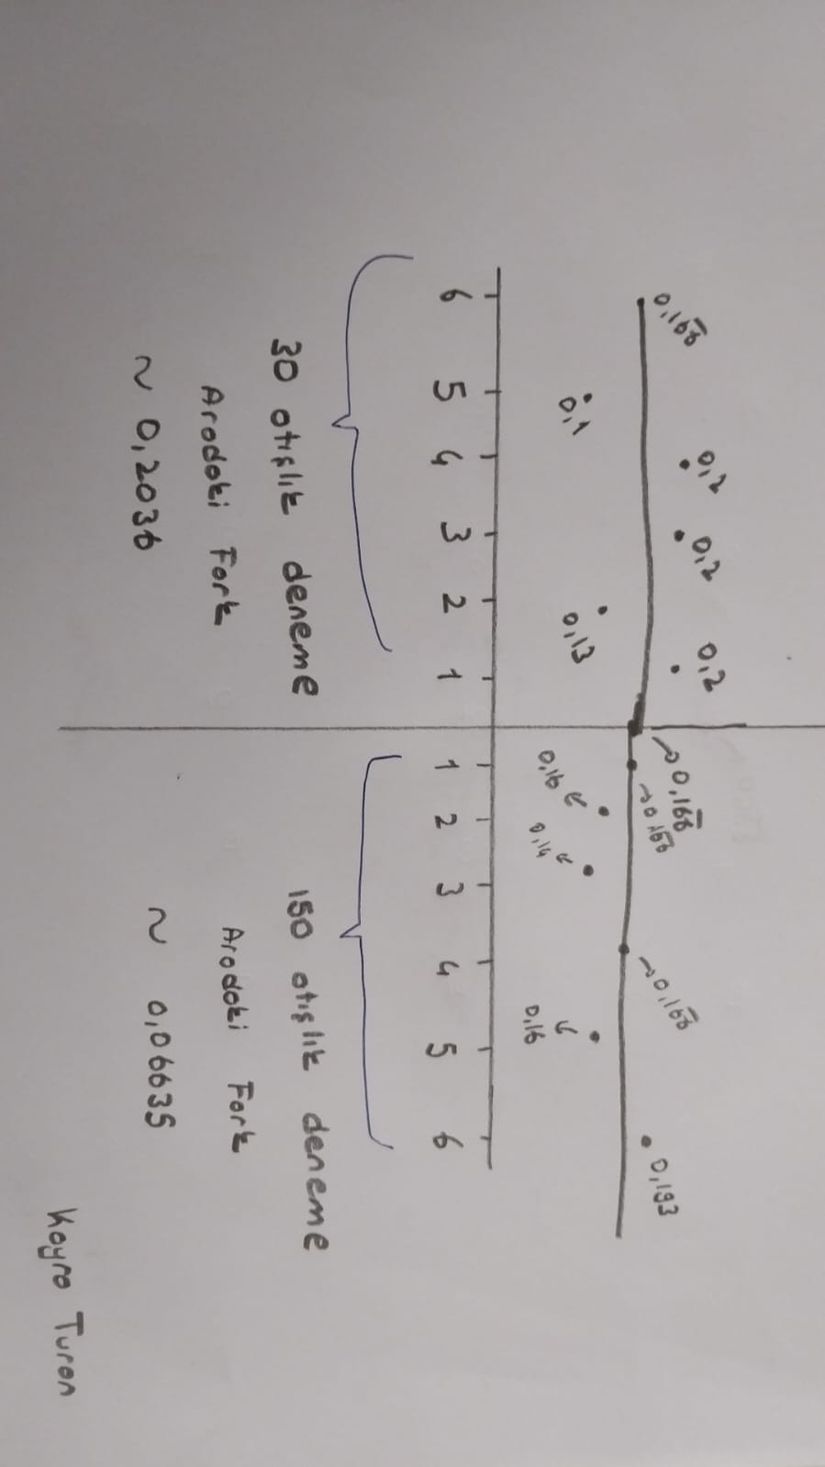 0,16$\overline{6}$ 0,2 0,2 0,2
0,1 0,13
6 5 4 3 2 1
30 atışlık deneme
Aradaki Fark
~ 0,2036
→0,16$\overline{6}$
→0,16$\overline{6}$ →0,16$\overline{6}$ 0,193
0,16 0,14 0,16
1 2 3 4 5 6
150 atışlık deneme
Aradaki Fark
~ 0,06635
Kayra Turan